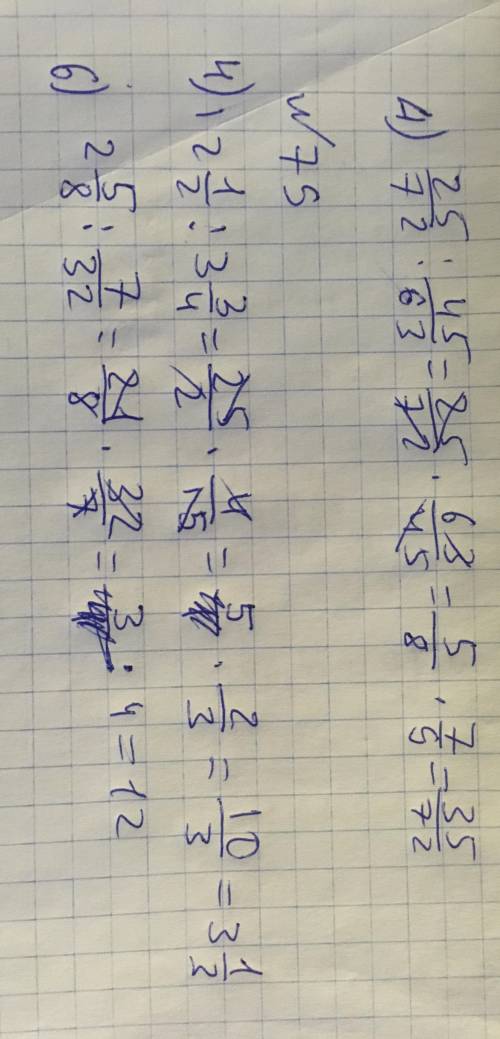 д) 25/72 : 45/63 = 25/72 · 63/45 = 5/8 · 7/5 = 35/72
№75
4) 12 1/2 : 3 3/4 = 25/2 · 4/15 = 5 · 2/3 = 10/3 = 3 1/2
6) 2 5/8 : 7/32 = 21/8 · 32/7 = 3 · 4 = 12